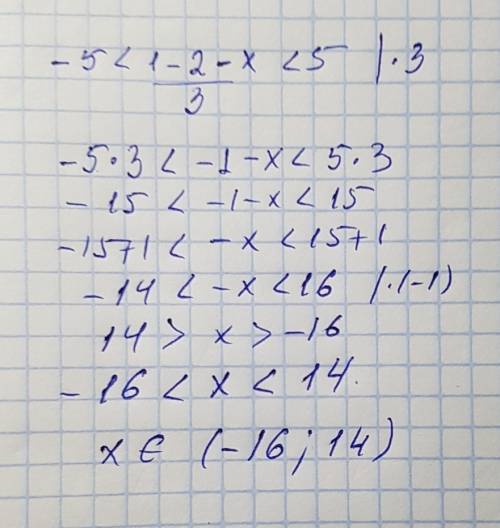 -5 < 1 - 2 - x < 5 | · 3
3
-5·3 < -1 - x < 5·3
-15 < -1 - x < 15
-15+1 < -x < 15+1
-14 < -x < 16 |·(-1)
14 > x > -16
-16 < x < 14.
x ∈ (-16; 14)